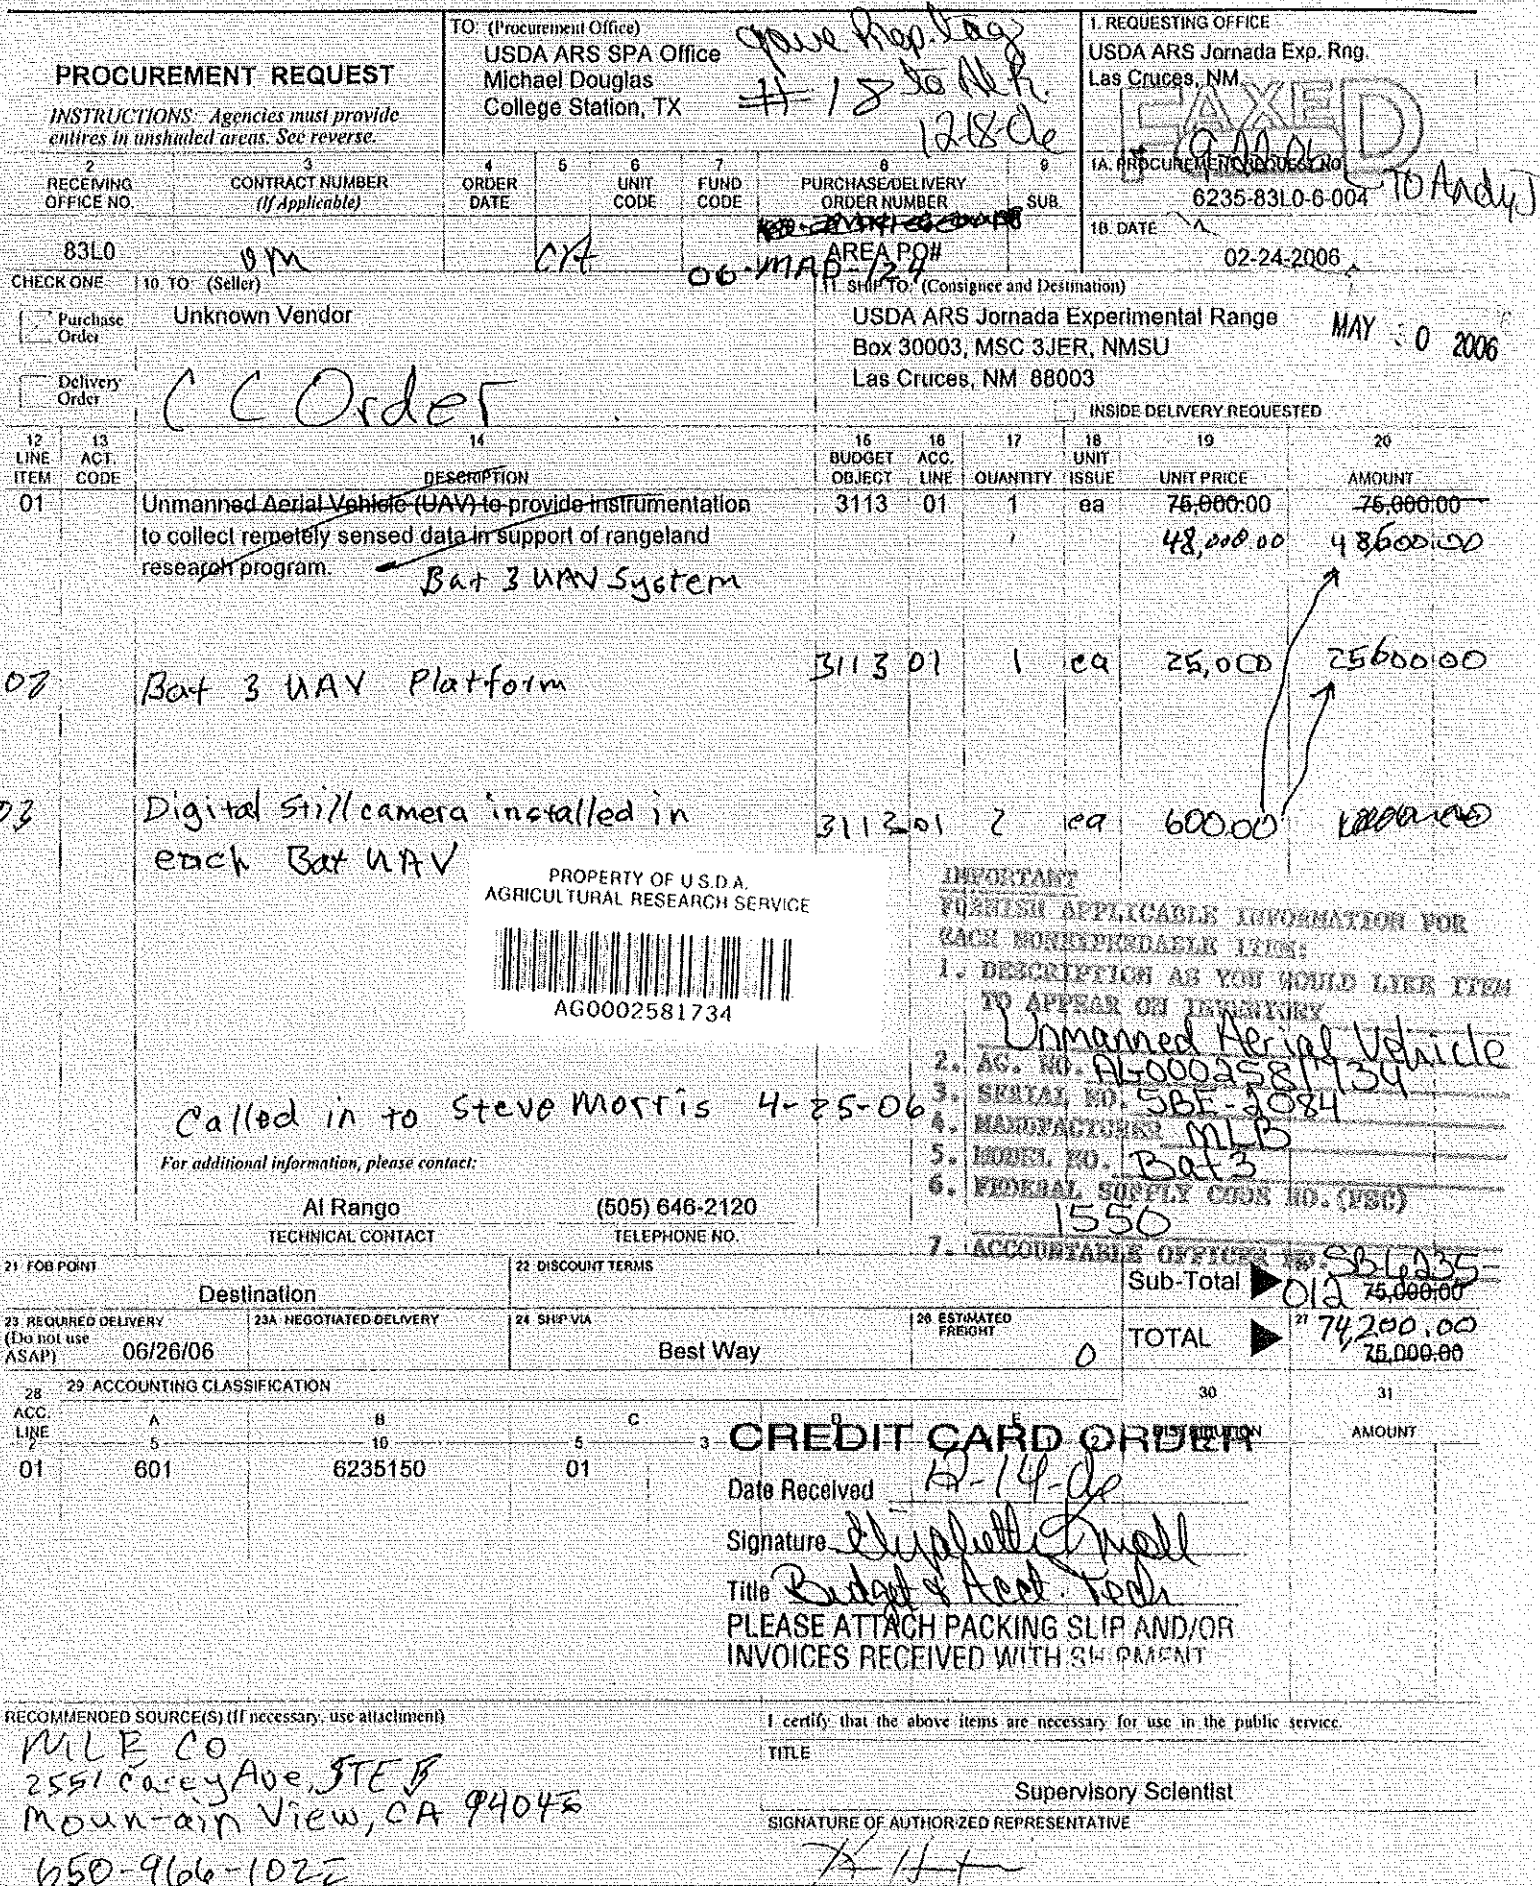 PROCUREMENT REQUEST
INSTRUCTIONS: Agencies must provide
entires in unshaded areas. See reverse.
TO: (Procurement Office)
USDA ARS SPA Office
Michael Douglas
College Station, TX
gave Prop. tag
# 18 to
1. REQUESTING OFFICE
USDA ARS Jornada Exp. Rng.
Las Cruces, NM
FAXED
TO Andy J
1A. PROCUREMENT REQUEST NO
6235-83L0-6-004
1B. DATE
02-24-2006
2
RECEIVING
OFFICE NO.
83L0
3
CONTRACT NUMBER
(If Applicable)
4
ORDER
DATE
5
6
UNIT
CODE
7
FUND
CODE
8
PURCHASE/DELIVERY
ORDER NUMBER
AREA PO#
06-MAP-124
9
SUB.
CHECK ONE
Purchase
Order
Delivery
Order
10. TO (Seller)
Unknown Vendor
CC Order
11. SHIP TO: (Consignee and Destination)
USDA ARS Jornada Experimental Range
Box 30003, MSC 3JER, NMSU
Las Cruces, NM 88003
MAY 0 2006
INSIDE DELIVERY REQUESTED
12
LINE
ITEM
13
ACT.
CODE
14
DESCRIPTION
15
BUDGET
OBJECT
16
ACC.
LINE
17
QUANTITY
18
UNIT
ISSUE
19
UNIT PRICE
20
AMOUNT
01 Unmanned Aerial Vehicle (UAV) to provide instrumentation 3113 01 1 ea 75,000.00 75,000.00
to collect remotely sensed data in support of rangeland 48,000.00 48600.00
research program.
Bat 3 UAV System
02 Bat 3 UAV Platform 3113 01 1 ea 25,000 25600.00
03 Digital still camera installed in 3113 01 2 ea 600.00
each Bat UAV
PROPERTY OF U.S.D.A.
AGRICULTURAL RESEARCH SERVICE
AG0002581734
IMPORTANT
FURNISH APPLICABLE INFORMATION FOR
EACH NONEXPENDABLE ITEM:
1. DESCRIPTION AS YOU WOULD LIKE ITEM
TO APPEAR ON INVENTORY
Unmanned Aerial Vehicle
2. AG. NO. AG0002581734
3. SERIAL NO. SBE-2084
4. MANUFACTURER MLB
5. MODEL NO. Bat 3
6. FEDERAL SUPPLY CODE NO. (FSC)
1550
7. ACCOUNTABLE OFFICER NO. SB6235-
012
Called in to Steve Morris 4-25-06
For additional information, please contact:
Al Rango (505) 646-2120
TECHNICAL CONTACT TELEPHONE NO.
21 FOB POINT
Destination
22 DISCOUNT TERMS
Sub-Total 75,000.00
23 REQUIRED DELIVERY
(Do not use
ASAP)
06/26/06
23A NEGOTIATED DELIVERY
24 SHIP VIA
Best Way
26 ESTIMATED
FREIGHT
0
TOTAL
27 74,200.00
75,000.00
28
ACC.
LINE
2
01
29 ACCOUNTING CLASSIFICATION
A B C D E
5 10 5 3 2
601 6235150 01
30
DISTRIBUTION
31
AMOUNT
CREDIT CARD ORDER
Date Received 12-14-06
Signature
Title Budget & Acct. Tech
PLEASE ATTACH PACKING SLIP AND/OR
INVOICES RECEIVED WITH SHIPMENT
RECOMMENDED SOURCE(S) (If necessary, use attachment)
2551 Casey Ave, STE B
Moun-ain View, CA
650-966-102
I certify that the above items are necessary for use in the public service.
TITLE
Supervisory Scientist
SIGNATURE OF AUTHORIZED REPRESENTATIVE